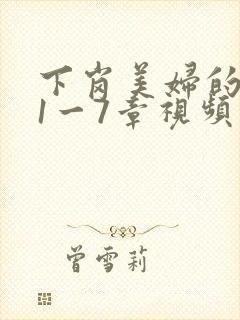 下岗美婦的
1一7章視頻
曾雪莉